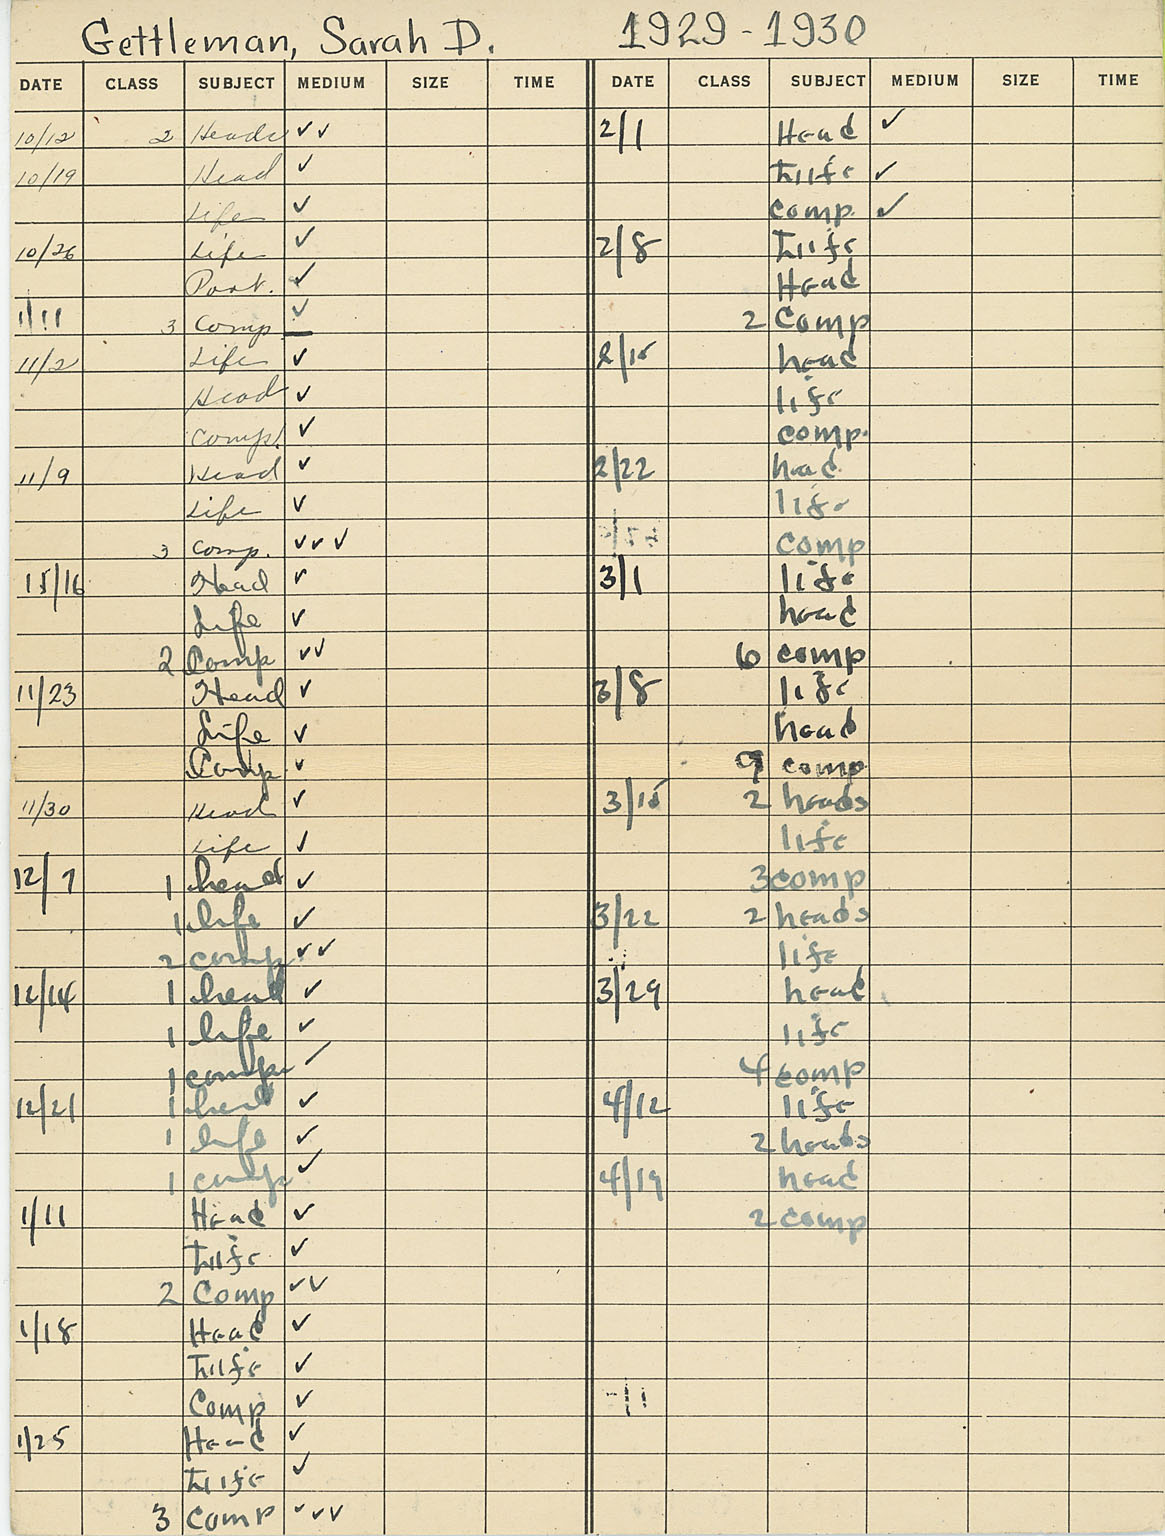 Gettleman, Sarah D. 1929-1930
DATE CLASS SUBJECT MEDIUM SIZE TIME
10/12 2 Heads ✓✓
10/19 Head ✓
Life ✓
10/26 Life ✓
Port. ✓
1/11 3 Comp ✓
11/2 Life ✓
Head ✓
Comp. ✓
11/9 Head ✓
Life ✓
3 comp. ✓✓✓
15/16 Head ✓
Life ✓
2 Comp ✓✓
11/23 Head ✓
Life ✓
Comp ✓
11/30 Head ✓
Life ✓
12/7 1 head ✓
1 life ✓
2 comp ✓✓
12/14 1 head ✓
1 life ✓
1 comp ✓
12/21 1 head ✓
1 life ✓
1 comp ✓
1/11 Head ✓
Life ✓
2 Comp ✓✓
1/18 Head ✓
Life ✓
Comp ✓
1/25 Head ✓
Life ✓
3 Comp ✓✓✓
DATE CLASS SUBJECT MEDIUM SIZE TIME
2/1 Head ✓
Life ✓
Comp. ✓
2/8 Life
Head
2 Comp
2/15 head
life
comp.
2/22 head
life
comp
3/1 life
head
6 comp
3/8 life
head
9 comp
3/15 2 heads
life
3 comp
3/22 2 heads
life
3/29 head
life
4 comp
4/12 life
2 heads
4/19 head
2 comp